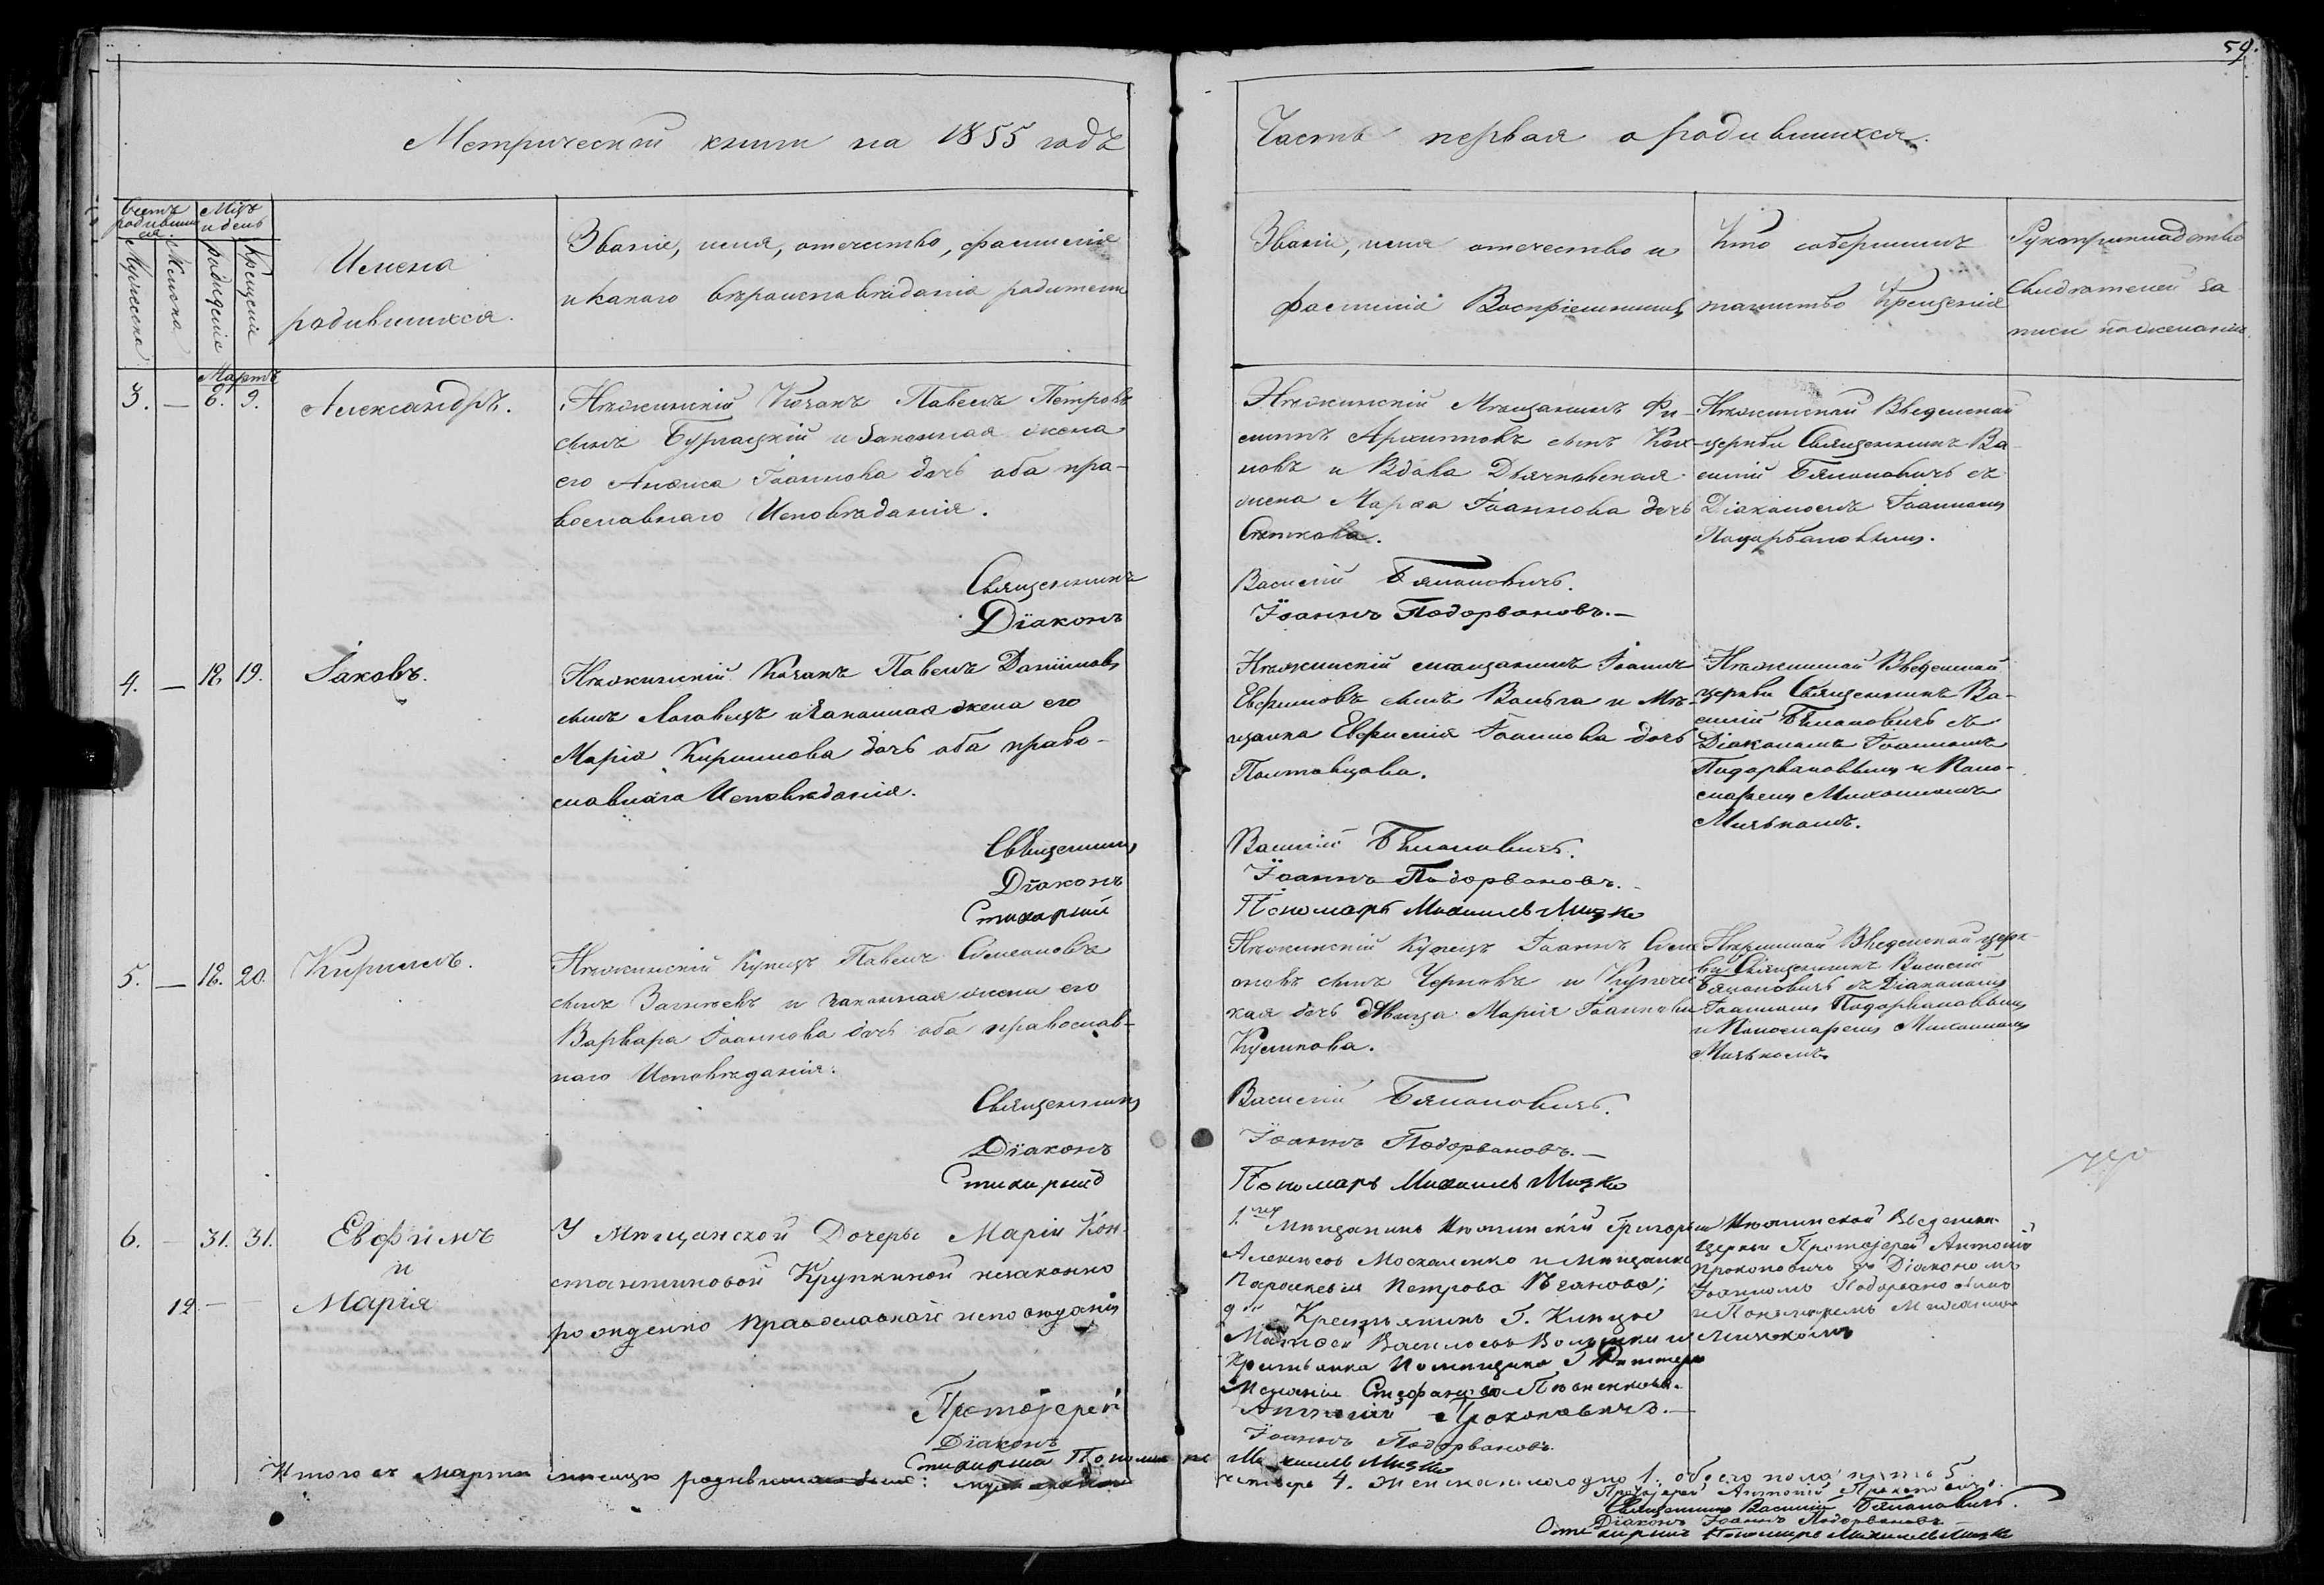 59.
Метрической книги на 1855 годъ
Часть первая о родившихся.
Счетъ родившихся
Мѣц. и день
Мужеска
Женска
рожденія
крещенія
Имена
родившихся.
Званіе, имя, отечество, фамилія
и какого вѣроисповѣданія родители
Званіе, имя отечество и
фамилія Воспріемниковъ
Кто совершилъ
таинство Крещенія
Рукоприкладство
свидѣтелей за
писи по желанію
Мартъ
3. — 6. 9.
Александръ.
Нѣжинскій Козакъ Павелъ Петровъ
сынъ Бурлацкій и законная жена
его Анѳиса Іоаннова дочь оба пра-
вославнаго Исповѣданія.
Священникъ
Діаконъ
Нѣжинскій Мѣщанинъ Фи-
липпъ Архиповъ сынъ
новъ и Вдова Дьячковская
жена Марѳа Іоаннова дочь
Василій Бѣлановичъ.
Іоаннъ Подорвановъ.—
Нѣжинской Введенской
церкви Священникъ Ва-
силій Бѣлановичъ съ
Діакономъ Іоанномъ
Подорвановымъ.
4. — 18. 19.
Іаковъ.
Нѣжинскій Козакъ Павелъ Даніиловъ
сынъ и законная жена его
Марія Кириллова дочь оба право-
славнаго Исповѣданія.
Священникъ
Діаконъ
Стихарный
Нѣжинскій мѣщанинъ Іоаннъ
Евфимовъ сынъ и Мѣ-
щанка Евфимія Іоаннова дочь
Полтавцова.
Василій Бѣлановичъ.
Іоаннъ Подорвановъ.
Пономарь Михаилъ Мизко
Нѣжинской Введенской
церкви Священникъ Ва-
силій Бѣлановичъ съ
Діакономъ Іоанномъ
Подорвановымъ и Поно-
маремъ Михаиломъ
Мизькомъ.
5. — 18. 20.
Кириллъ.
Нѣжинскій Купецъ Павелъ Симеоновъ
сынъ и законная жена его
Варвара Іоаннова дочь оба православ-
наго Исповѣданія.
Священникъ
Діаконъ
Стихарный
Нѣжинскій Купецъ Іоаннъ Симе-
оновъ сынъ Черновъ и Купечес
кая дочь дѣвица Марія Іоаннова
Куликова.
Василій Бѣлановичъ.
Іоаннъ Подорвановъ.—
Пономарь Михаилъ Мизко
Нѣжинской Введенской церк-
ви Священникъ Василій
Бѣлановичъ съ Діакономъ
Іоанномъ Подорвановымъ
и Пономаремъ Михаиломъ
Мизькомъ.
6. — 31. 31.
Евфимъ
и
12 — —
Марія
У Мѣщанской Дочери Маріи Кон-
стантиновой Крупкиной незаконно
рожденно Православнаго исповѣданія
Протоіерей
Діаконъ
Стихарный Пономарь
1. Мѣщанинъ Нѣжинскій Григорій
Алексѣевъ Москаленко и Мѣщанка
Параскевія Петрова
2. Крестьянинъ Г.
Матѳей Васильевъ и
Крестьянка Помѣщика Г.
Меланія Стефанова
Антоній Прокоповичъ.—
Іоаннъ Подорвановъ.
Михаилъ Мизко
Нѣжинской Введенской
Церкви Протоіерей Антоній
Прокоповичъ съ Діакономъ
Іоанномъ Подорвановымъ
и Пономаремъ Михаиломъ
Мизькомъ
Итого въ Мартѣ мѣсяцѣ родившихся было: мужеска пола
четыре 4. женска одно 1. обоего пола пять 5.
Протоіерей Антоній Прокоповичъ.
Священникъ Василій Бѣлановичъ.
Діаконъ Іоаннъ Подорвановъ
Стихарный Пономарь Михаилъ Мизко